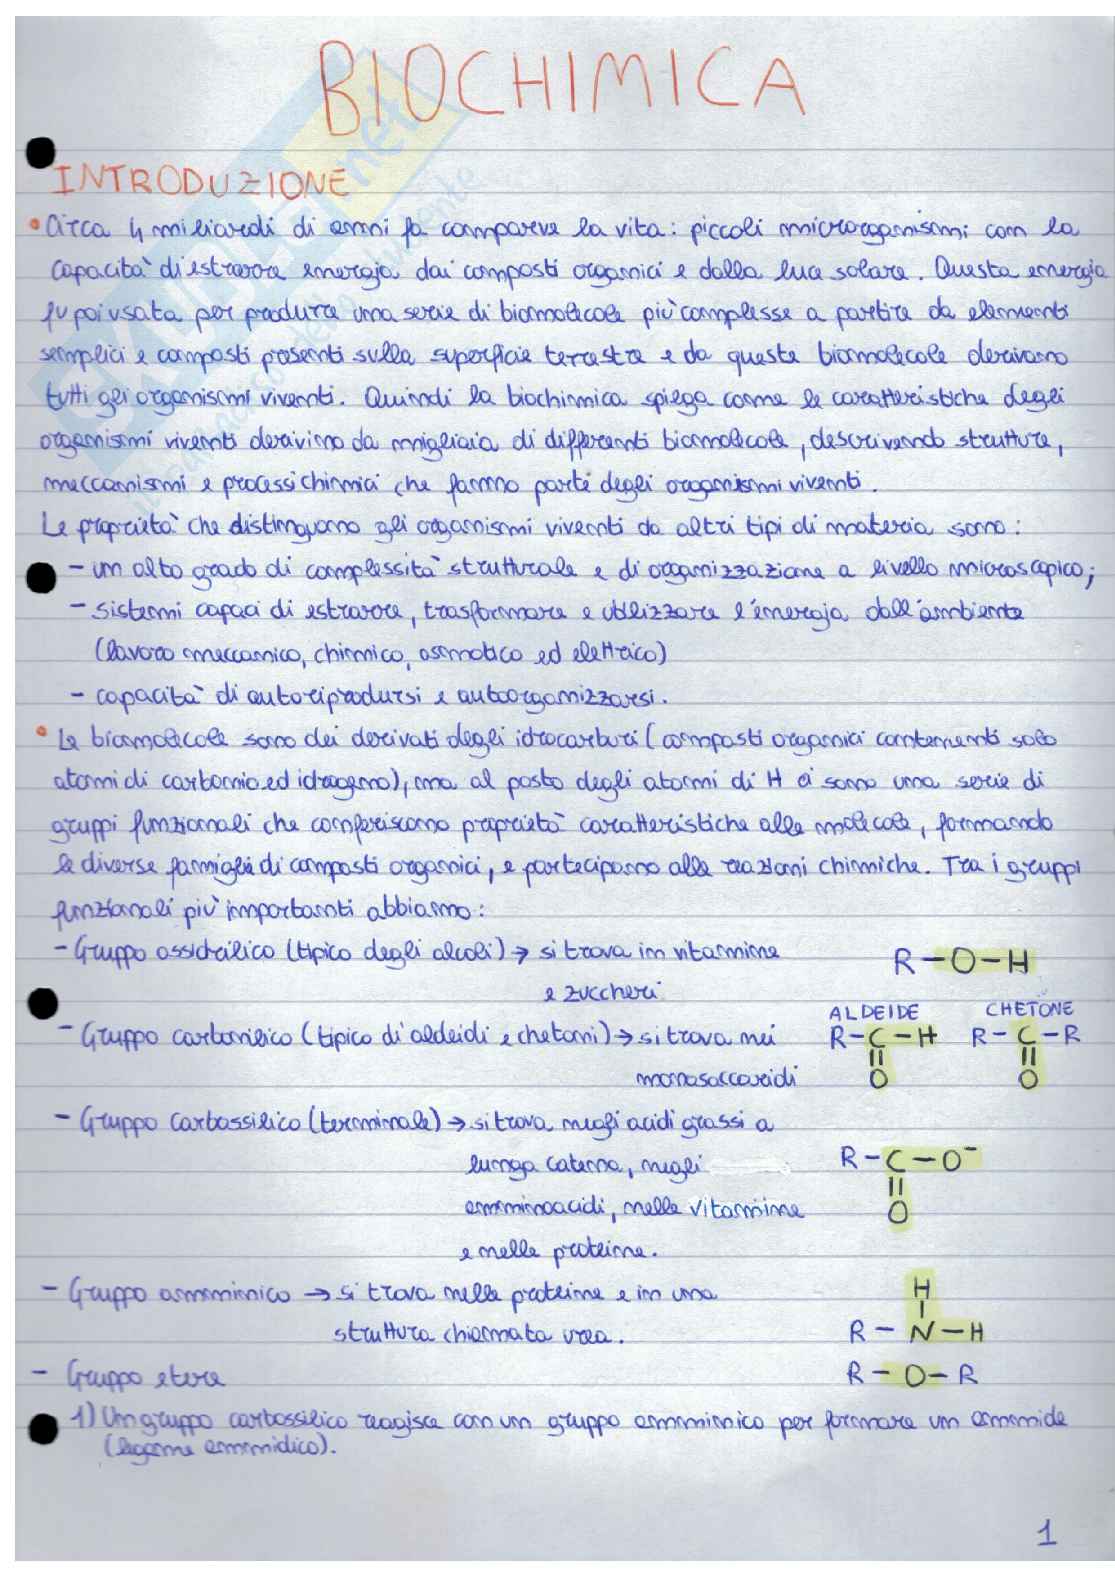 BIOCHIMICA
INTRODUZIONE
• Circa 4 miliardi di anni fa comparve la vita: piccoli microorganismi con la
capacità di estrarre energia dai composti organici e dalla luce solare. Questa energia
fu poi usata per produrre una serie di biomolecole più complesse a partire da elementi
semplici e composti presenti sulla superficie terrestre e da queste biomolecole derivano
tutti gli organismi viventi. Quindi la biochimica spiega come le caratteristiche degli
organismi viventi derivino da migliaia di differenti biomolecole, descrivendo strutture,
meccanismi e processi chimici che fanno parte degli organismi viventi.
Le proprietà che distinguono gli organismi viventi da altri tipi di materia sono:
- un alto grado di complessità strutturale e di organizzazione a livello microscopico;
- sistemi capaci di estrarre, trasformare e utilizzare l'energia dall'ambiente
(lavoro meccanico, chimico, osmotico ed elettrico)
- capacità di autoriprodursi e autoorganizzarsi.
• Le biomolecole sono dei derivati degli idrocarburi (composti organici contenenti solo
atomi di carbonio ed idrogeno), ma al posto degli atomi di H ci sono una serie di
gruppi funzionali che conferiscono proprietà caratteristiche alle molecole, formando
le diverse famiglie di composti organici, e partecipano alle reazioni chimiche. Tra i gruppi
funzionali più importanti abbiamo:
- Gruppo ossidrilico (tipico degli alcoli) → si trova in vitamine
e zuccheri
R-O-H
ALDEIDE CHETONE
- Gruppo carbonilico (tipico di aldeidi e chetoni) → si trova nei
monosaccaridi
R-C-H R-C-R
O O
- Gruppo carbossilico (terminale) → si trova negli acidi grassi a
lunga catena, negli
amminoacidi, nelle vitamine
e nelle proteine.
R-C-O⁻
O
- Gruppo amminico → si trova nelle proteine e in una
struttura chiamata urea.
H
R-N-H
- Gruppo etere R-O-R
1) Un gruppo carbossilico reagisce con un gruppo amminico per formare un ammide
(legame ammidico).
1